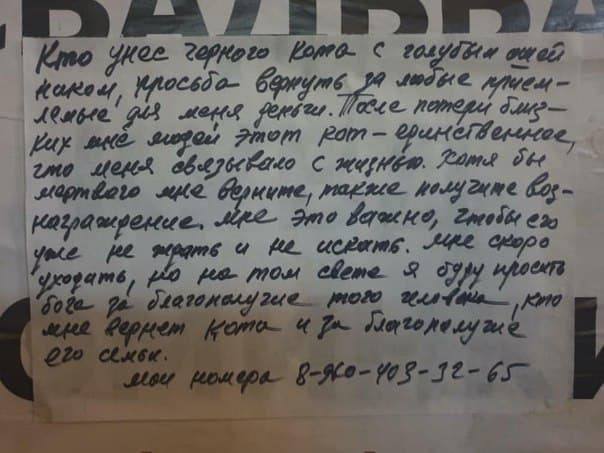 СВАДЬБА
Кто унес черного кота с голубым ошей
ником, просьба вернуть за любые прием-
лемые для меня деньги. После потери близ-
ких мне людей этот кот - единственное,
что меня связывало с жизнью. Хотя бы
мертвого мне верните, также получите воз-
награждение. Мне это важно, чтобы его
уже не ждать и не искать. Мне скоро
уходить, но на том свете я буду просить
бога за благополучие того человека, кто
мне вернет кота и за благополучие
его семьи.
мои номера 8-960-403-32-65